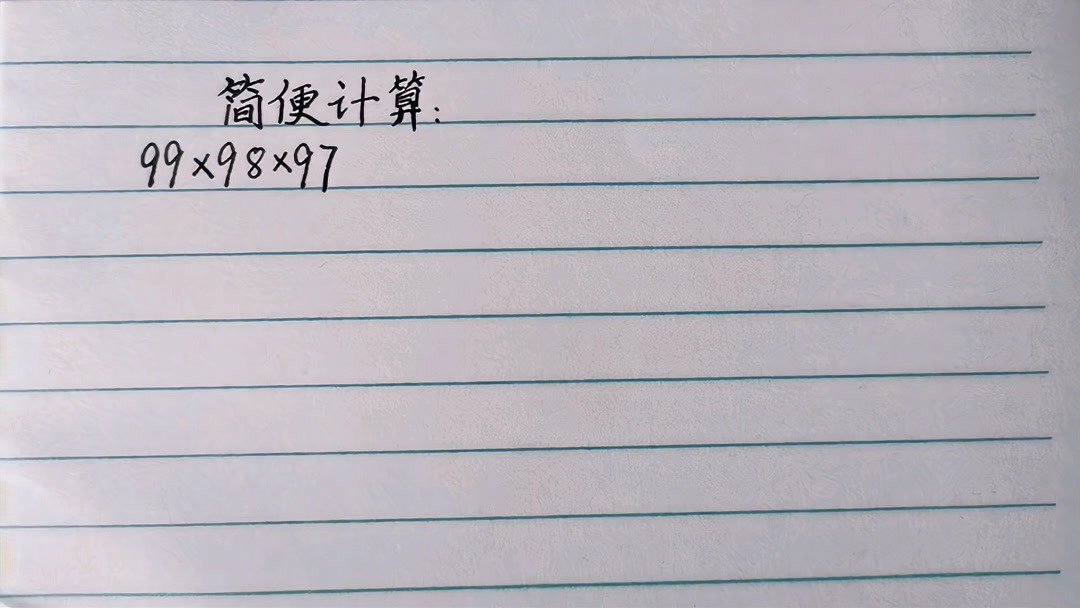 简便计算:
99×98×97